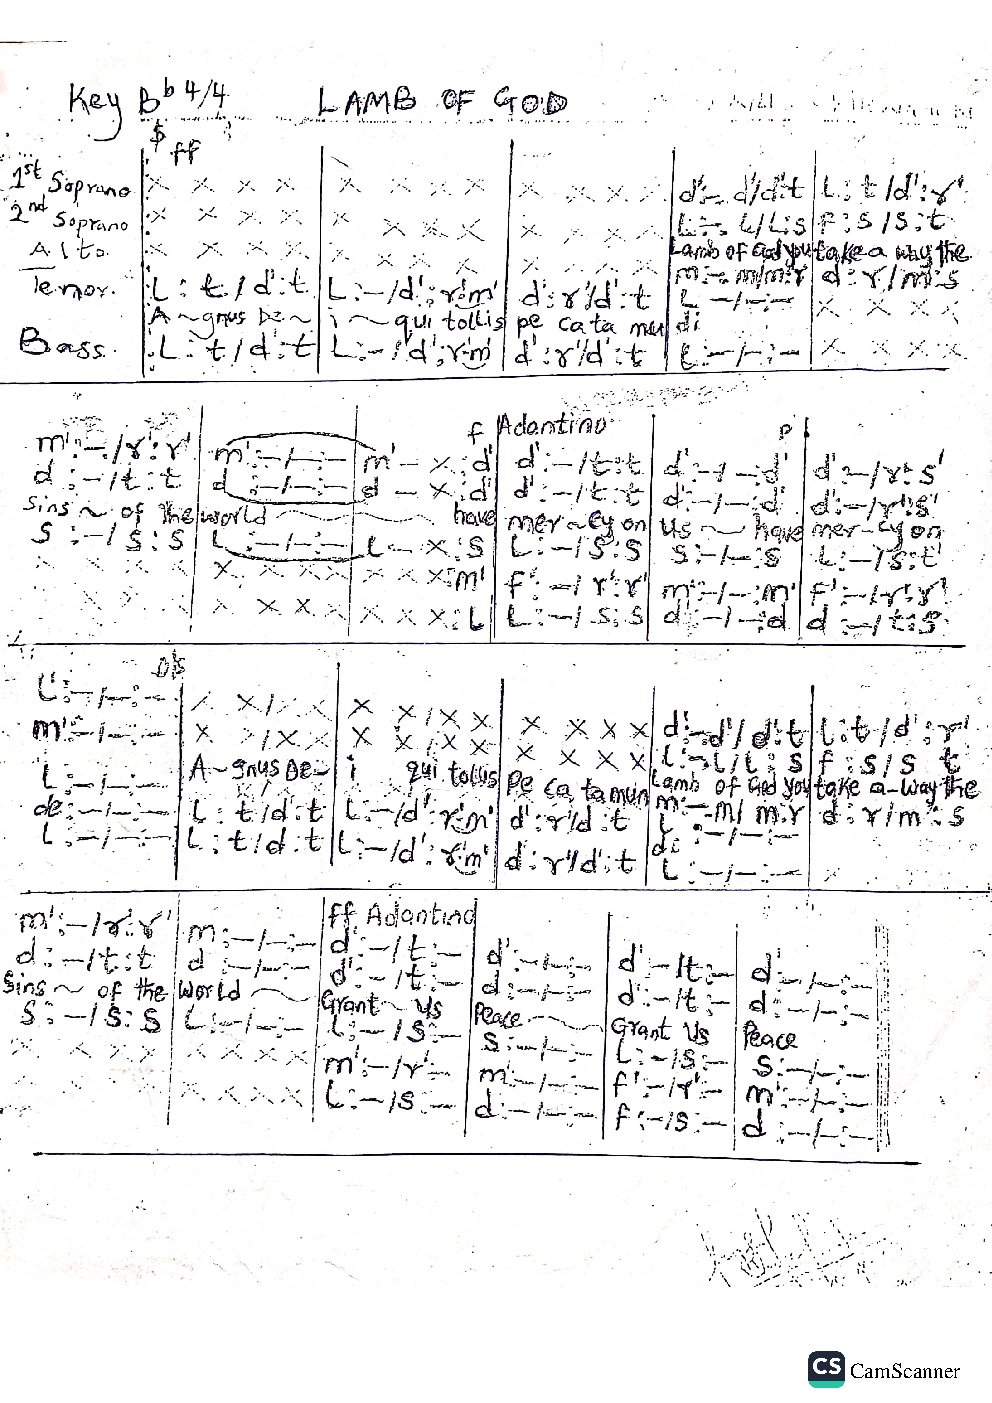 Key Bb 4/4 LAMB OF GOD
$ ff
1st Soprano x x x x | x x x x | x x x x | d':-. d'/d':t | L : t / d' : r'
2nd Soprano x x x x | x x x x | x x x x | L:-. L/L:s | f : s / s : t
Alto x x x x | x x x x | x x x x | Lamb of God you | take a way the
m:-. m/m:r | d : r / m : s
Tenor. L : t / d' : t | L : - / d' : r'm' | d' : r' / d' : t | L - / - : - | x x x x
A ~ gnus De ~ | i ~ qui tollis | pe ca ta mun | di
Bass. L : t / d' : t | L : - / d' : r'm' | d' : r' / d' : t | L : - / - : - | x x x x
f | Adantino p
m' : - / r' : r' | m' : - / - : - | m' - x : d' | d' : - / t : t | d' : - / - : d' | d' : - / r' : s'
d : - / t : t | d : - / - : - | d - x : d' | d' : - / t : t | d' : - / - : d | d' : - / r' : s'
Sins ~ of the | world ~ have | mer ~ cy on | us ~ have | mer - cy on
S : - / S : S | L : - / - : - | L - x : S | L : - / S : S | S : - / - : S | L : - / S : t'
x x x x | x x x x | x x x : m' | f' : - / r' : r' | m' : - / - : m' | f' : - / r' : r'
x x x x | x x x x | x x x : L | L : - / S : S | d' : - / - : d | d : - / t : S
D/s
L' : - / - : - | x x / x x | x x / x x | x x x x | d' : - d' / d' : t | L : t / d' : r'
m' : - / - : - | x x / x x | x x x x | x x x x | L : - L / L : S | f : s / s t
A ~ gnus De - | i qui tollis | pe ca ta mun | Lamb of God you | take a-way the
L : - / - : - | x x / x x | m' : - m / m : r | d : r / m : S
de : - / - : - | L : t / d' : t | L : - / d' : r'm' | d' : r' / d' : t | L : - / - : -
di
L : - / - : - | L : t / d' : t | L : - / d' : r'm' | d' : r' / d' : t | L : - / - : - | x
ff Adantino
m' : - / r' : r' | m : - / - : - | d' : - / t : - | d' : - / - : - | d' : - / t : - | d' : - / - : -
d : - / t : t | d : - / - : - | d' : - / t : - | d : - / - : - | d' : - / t : - | d : - / - : -
Sins ~ of the | World ~ | Grant ~ Us | Peace ~ | Grant Us | Peace
S : - / S : S | L : - / - : - | L : - / S : - | S : - / - : - | L : - / S : - | S : - / - : -
x x x x | x x x x | m' : - / r' : - | m' : - / - : - | f' : - / r' : - | m' : - / - : -
x x x x | x x x x | L : - / S : - | d : - / - : - | f : - / S : - | d : - / - : -
CS CamScanner